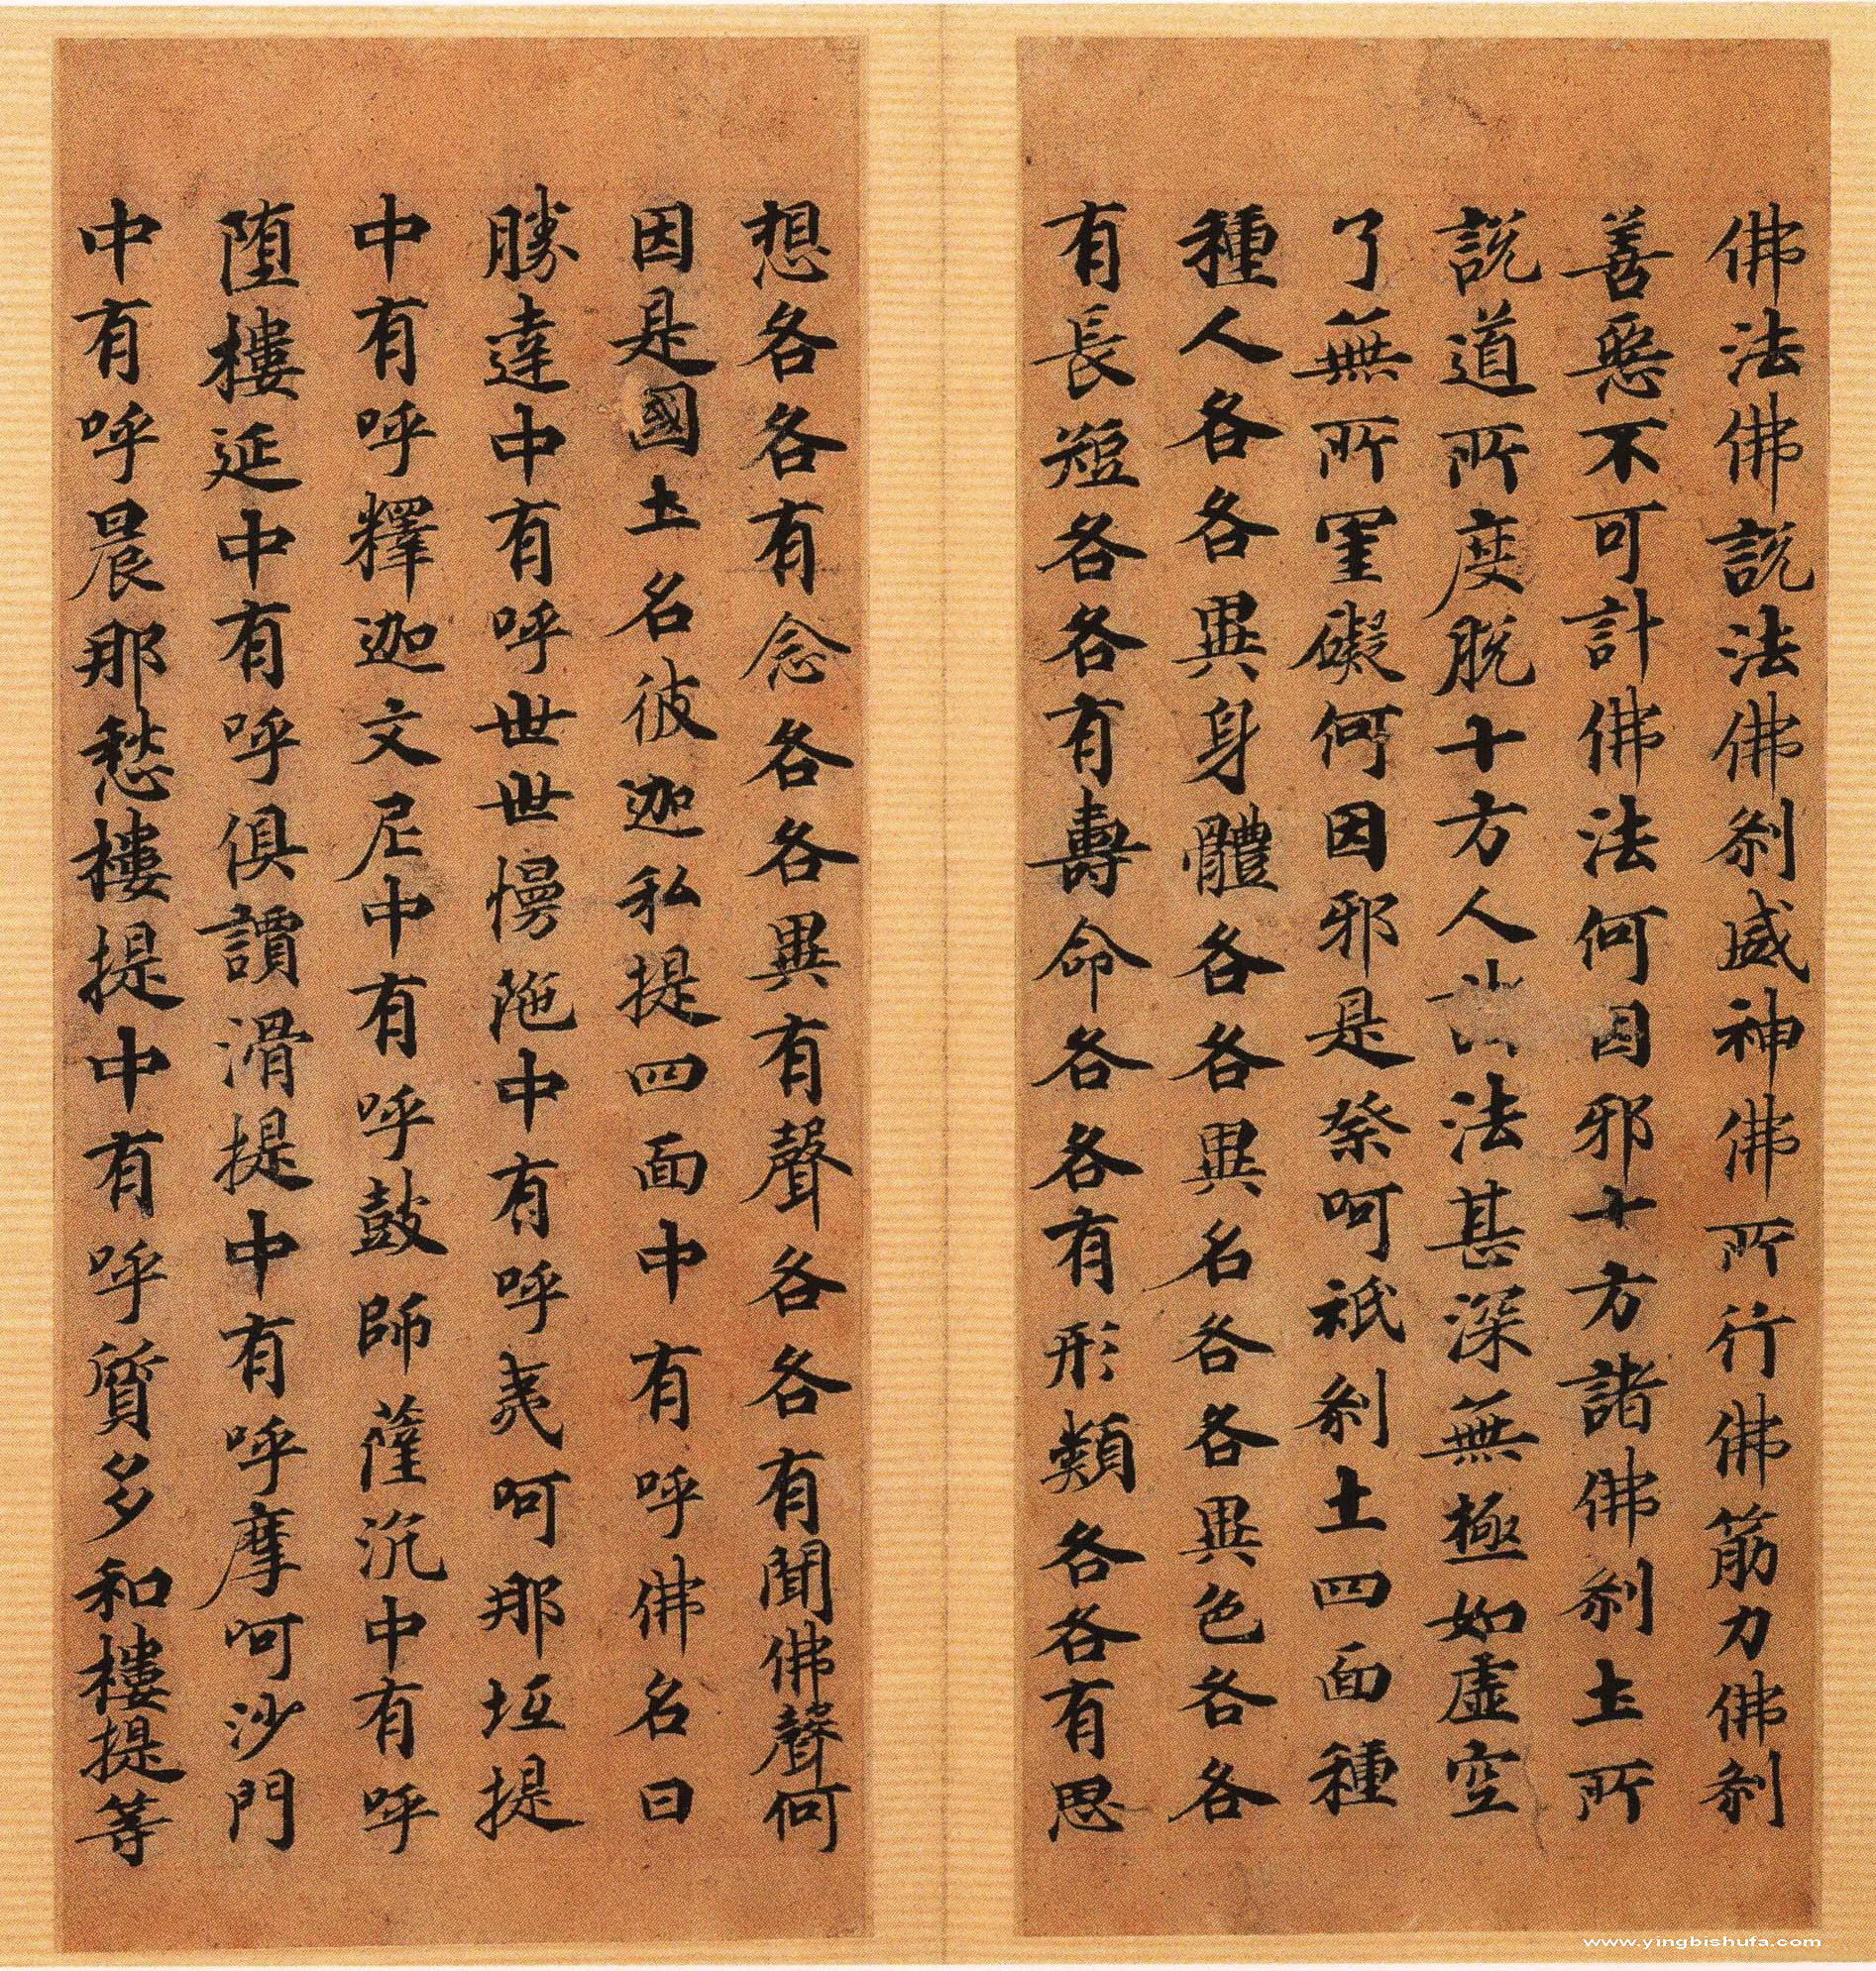 佛法佛說法佛剎威神佛所行佛筋力佛剎
善惡不可計佛法何因邪十方諸佛剎土所
說道所度脫十方人法甚深無極如虛空
了無所罣礙何因邪是祭呵祇剎土四面種
種人各各異身體各各異名各各異色各各
有長短各各有壽命各各有形類各各有思
想各各有念各各異有聲各各有聞佛聲何
因是國土名彼迦私提四面中有呼佛名曰
勝達中有呼世世慢陁中有呼夷呵那坻提
中有呼釋迦文尼中有呼鼓師薩沉中有呼
堕樓延中有呼俱譚滑提中有呼摩呵沙門
中有呼晨那愁樓提中有呼質多和樓提等
www.yingbishufa.com